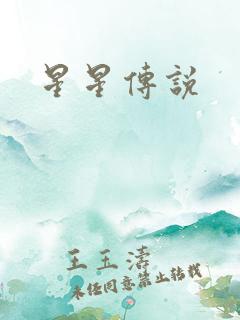 星星傳說
王玉濤
未经同意禁止转载